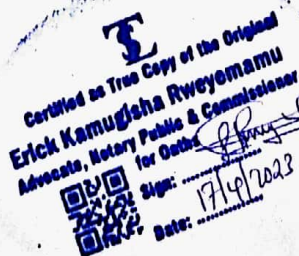 Certified as True Copy of the Original
Erick Kamugisha Rweyemamu
Advocate, Notary Public & Commissioner
for Oaths
Sign: ..............
Date: ..............
17/4/2023